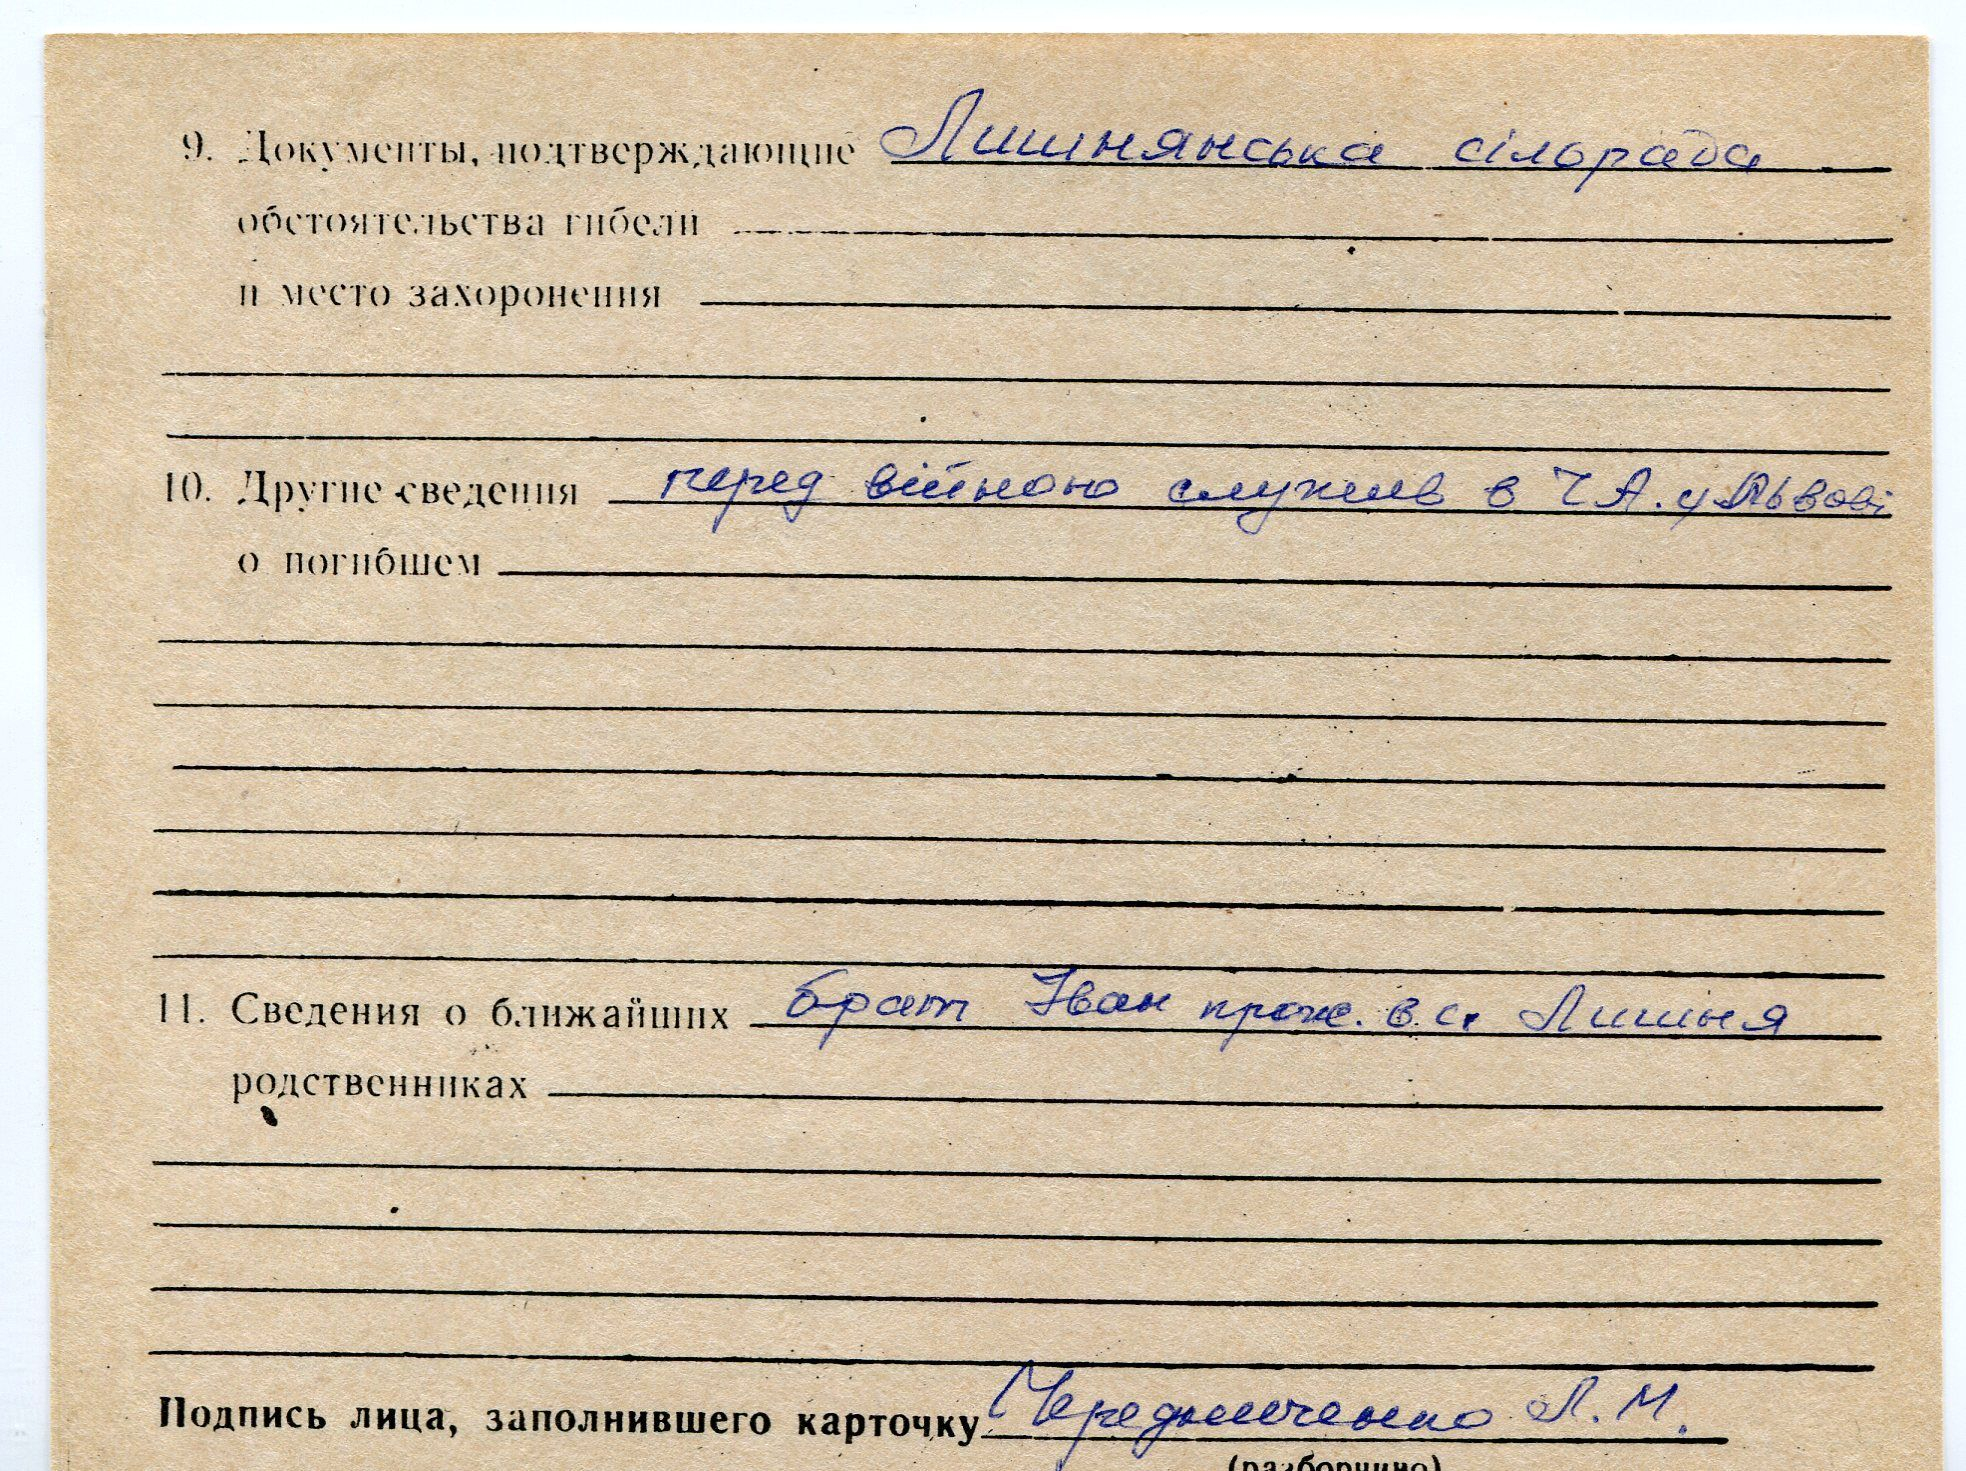 9. Документы, подтверждающие Лишнянська сілорада
обстоятельства гибели
и место захоронения
10. Другие сведения перед війною служив в Ч А. у Львові
о погибшем
11. Сведения о ближайших брат Іван прож. в с. Лишня
родственниках
Подпись лица, заполнившего карточку Чередниченко Л. М.
(разборчиво)